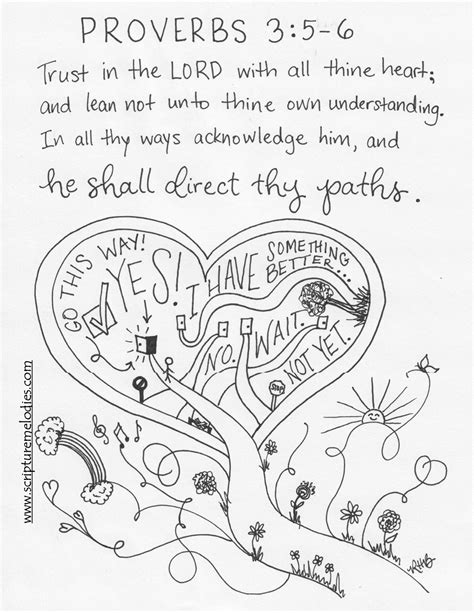 PROVERBS 3:5-6
Trust in the LORD with all thine heart;
and lean not unto thine own understanding.
In all thy ways acknowledge him, and
he shall direct thy paths.
GO THIS WAY!
YES!
I HAVE SOMETHING
BETTER...
NO.
WAIT.
NOT YET.
STOP
www.scripturemelodies.com